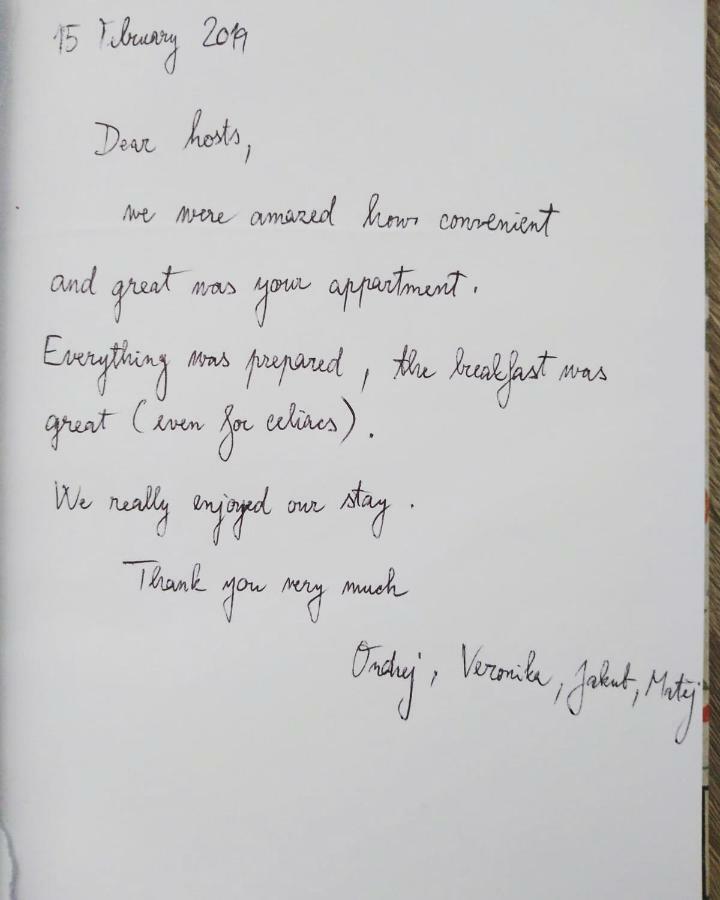 15 February 2019
Dear hosts,
we were amazed how convenient
and great was your appartment.
Everything was prepared, the breakfast was
great (even for celiacs).
We really enjoyed our stay.
Thank you very much
Ondrej, Veronika, Jakub, Matěj